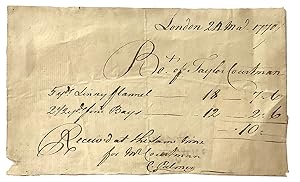 London 24 Ma. 1770
Bot. of Taylor Courtman
5 yds Linny Flannel 18 — 7..6
2 1/2 yds fine Bays — 12 — 2..6
10..
Receivd at the same time
for Mr Courtman